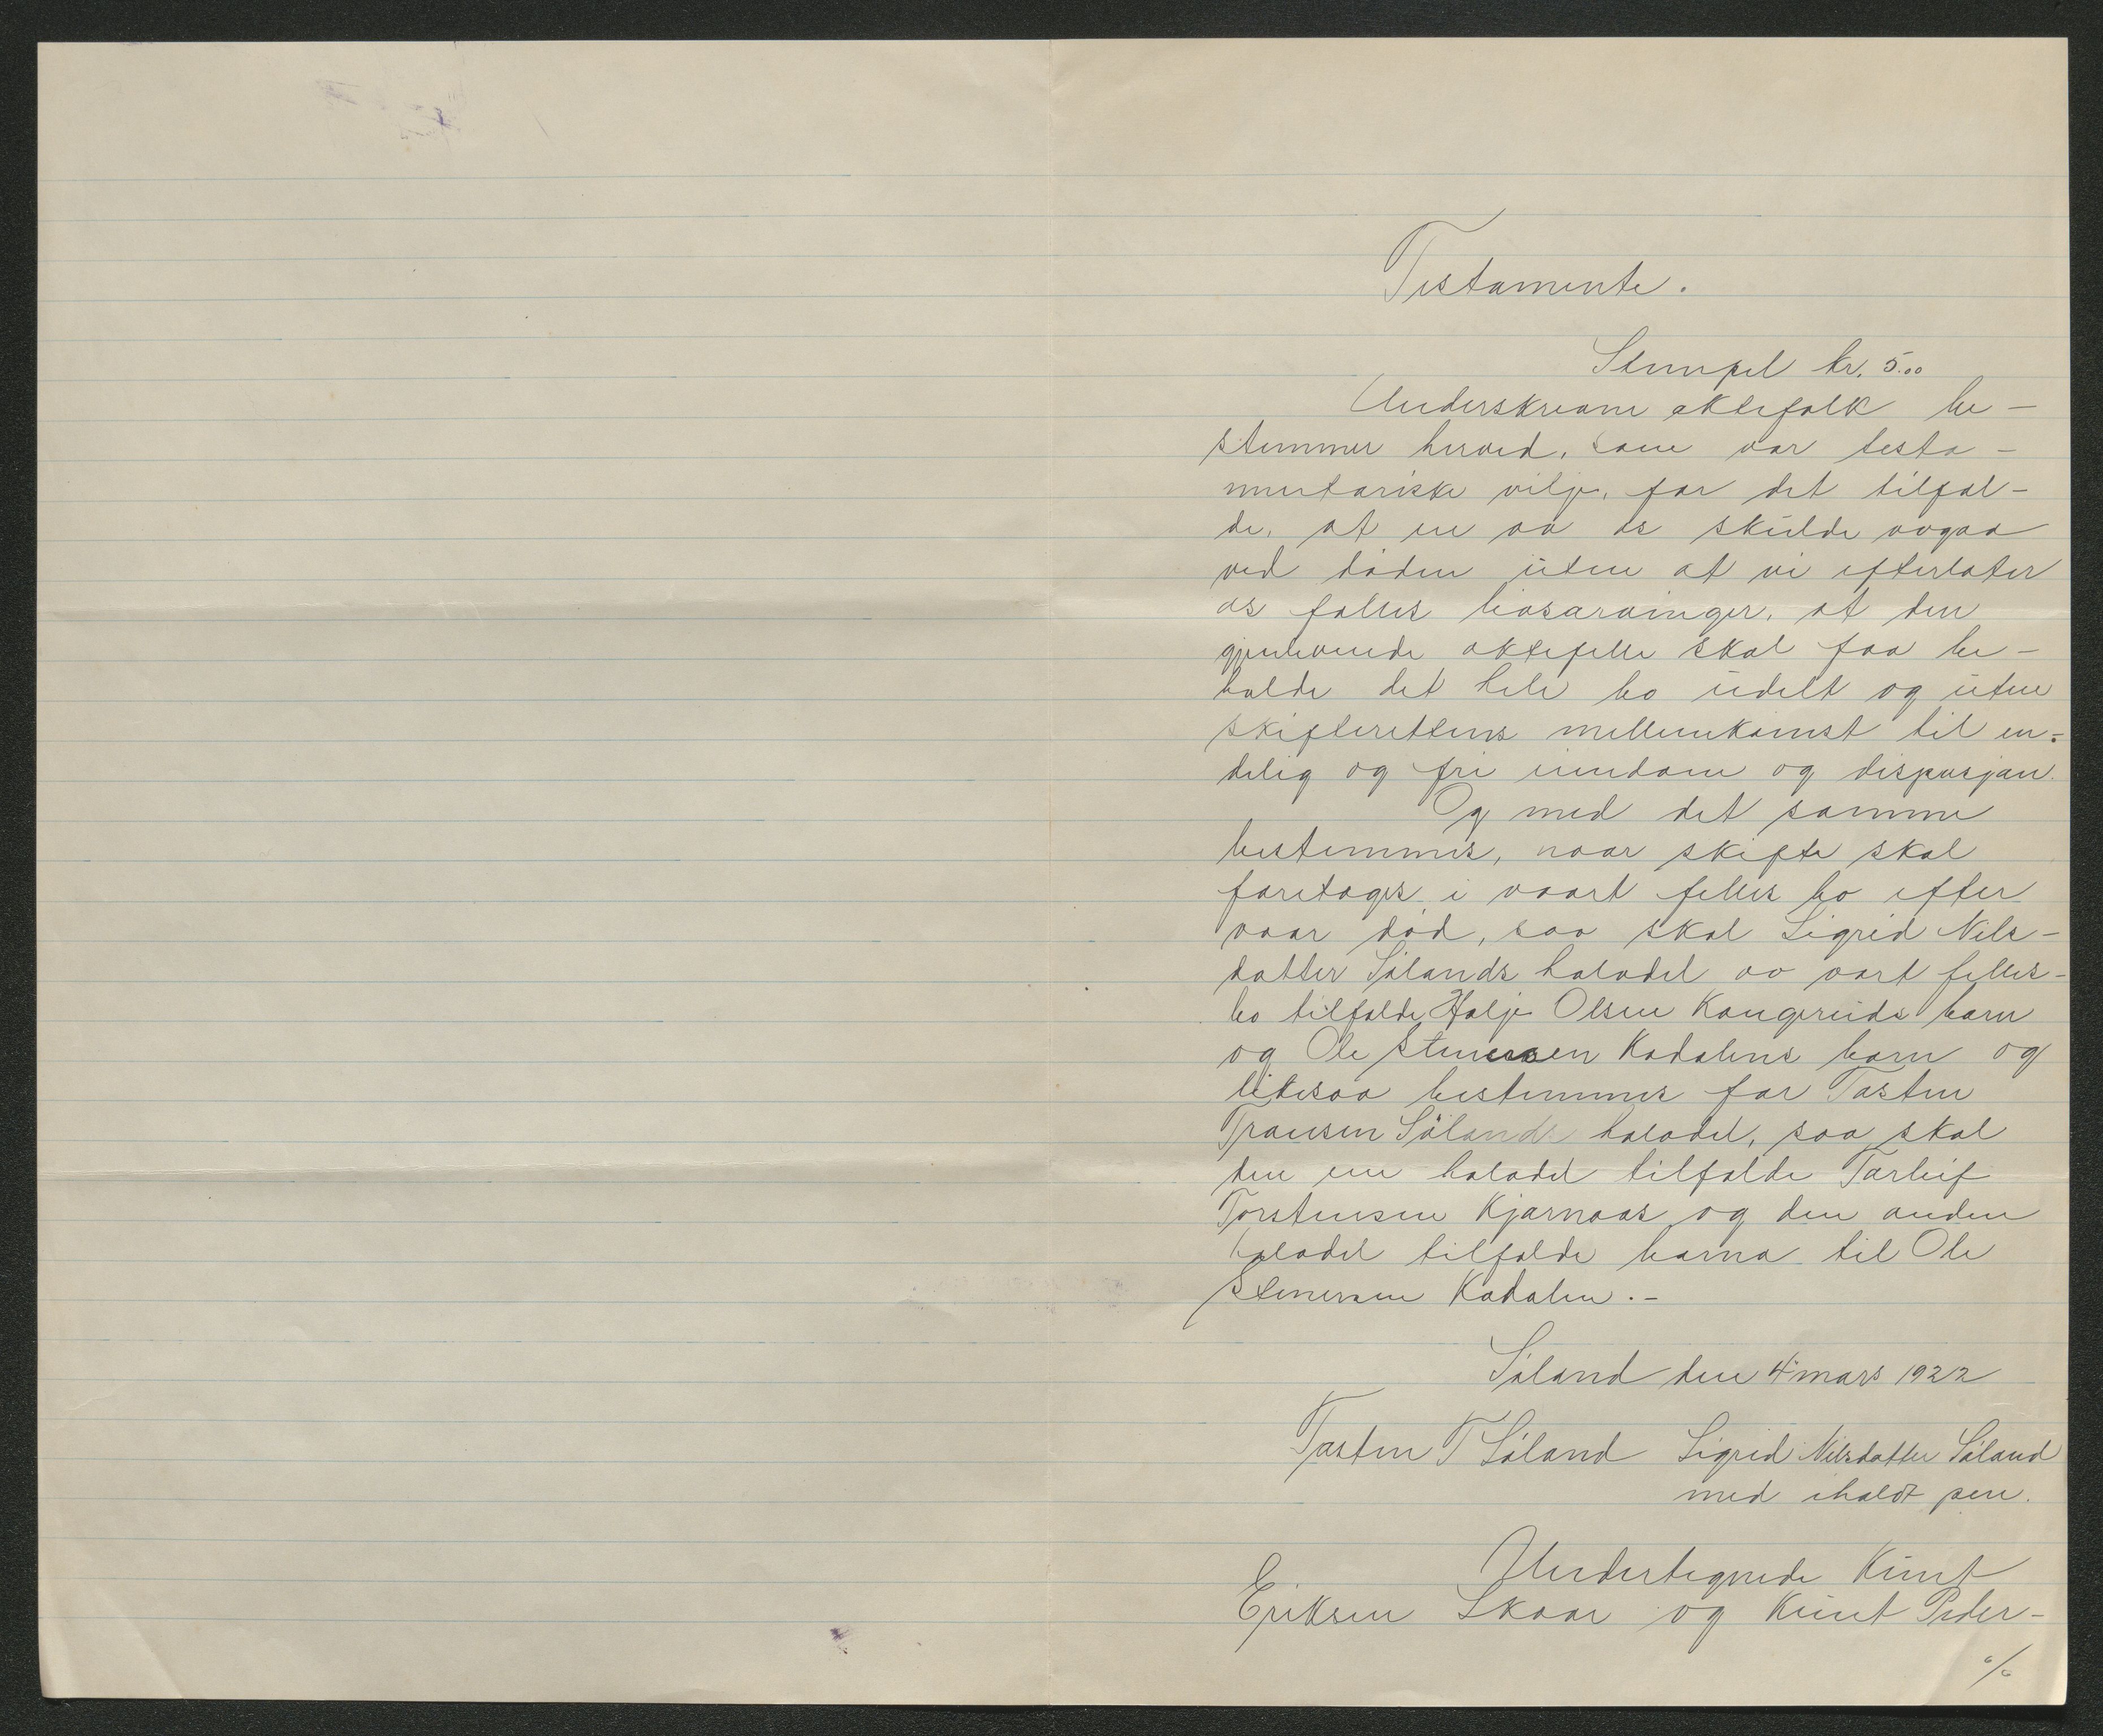 Testamente.
Stempel kr. 5.00
Underskrevne ektefolk be-
stemmer herved, som vor testa-
mentariske vilje, for det tilfæl-
de, at en av os skulde avgaa
ved døden uten at vi efterlater
os fælles livsarvinger, at den
gjenlevende ektefelle skal faa be-
holde det hele bo udelt og uten
skifterettens mellemkomst til en-
delig og fri eiendom og disposjon.
Og med det samme
bestemmes, naar skifte skal
foretages i vaart felles bo efter
vaar død, saa skal Sigrid Nils-
datter Sølands halvdel av vort felles-
bo tilfalde Halje Olsen Kongeruds barn
og Ole Stenersen Kadalens barn og
likesaa bestemmes for Tosten
Transen Sølands halvdel, saa skal
den ene halvdel tilfalde Torleif
Torstensen Kjørnaas og den anden
halvdel tilfalde barna til Ole
Stenersen Kadalen.-
Søland den 4 mars 1922
Tosten T Søland Sigrid Nilsdatter Søland
med iholdt pen.
Undertegnede Knut
Eriksen Skaar og Knut Peder-
%